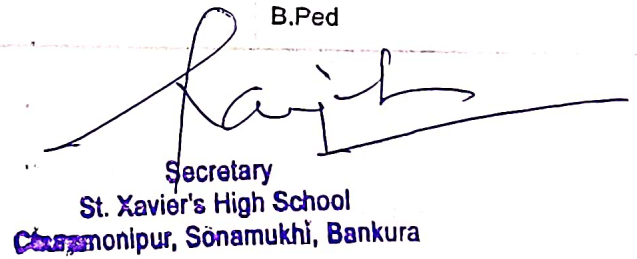 B.Ped
Secretary
St. Xavier's High School
Sonamukhi, Bankura